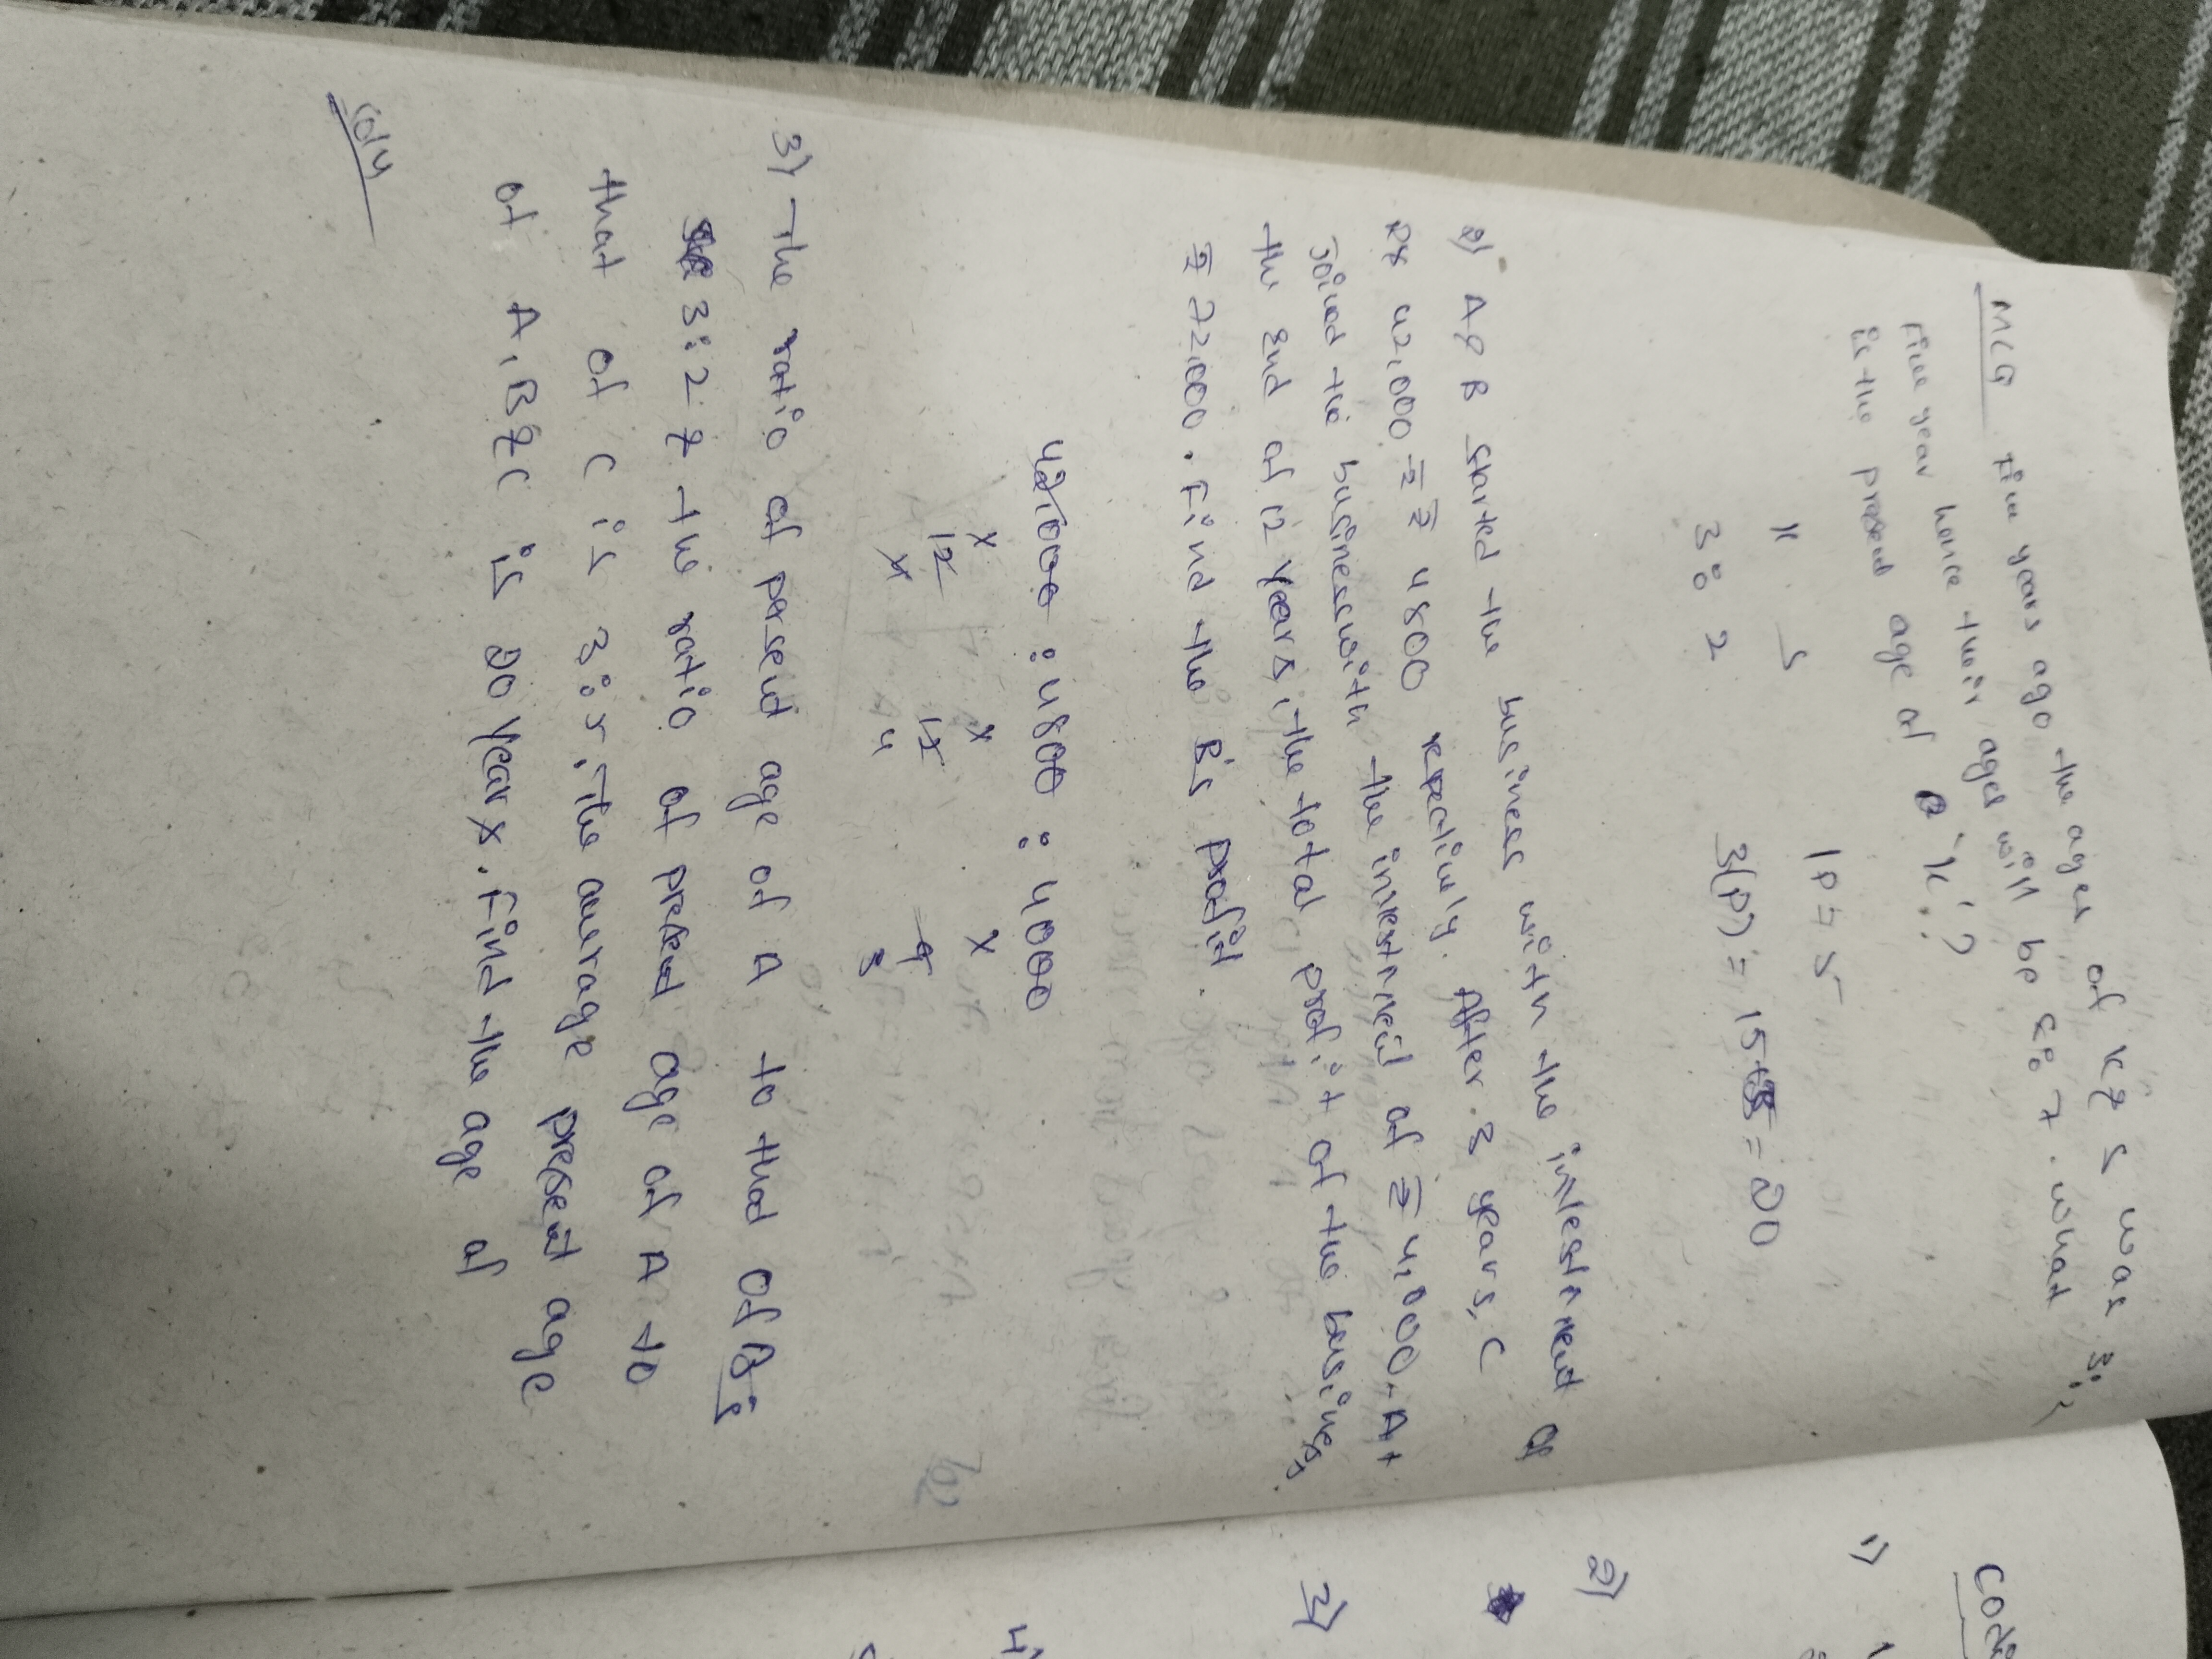 MCQ Five years ago the ages of K & S was 3:2
Five year hence their ages will be 8:7. what
is the present age of 'K'?
K S 1P = 5
3 : 2 3(P) = 15+5 = 20
2) A & B started the business with the investment of
42,000 = 4800 respectively. After 3 years, C
Joined the business with the investment of 4,000. At
the end of 12 years, the total profit of the business
22,000. Find the B's profit.
42,000 : 4800 : 4000
x x x
12 12 9
4 4 3
3) The ratio of persent age of A to that of B is
3:2 & the ratio of present age of A to
that of C is 3:5. The average present age
of A, B & C is 20 years. Find the age of
Soln
Codi
1)
2)
3)
4)